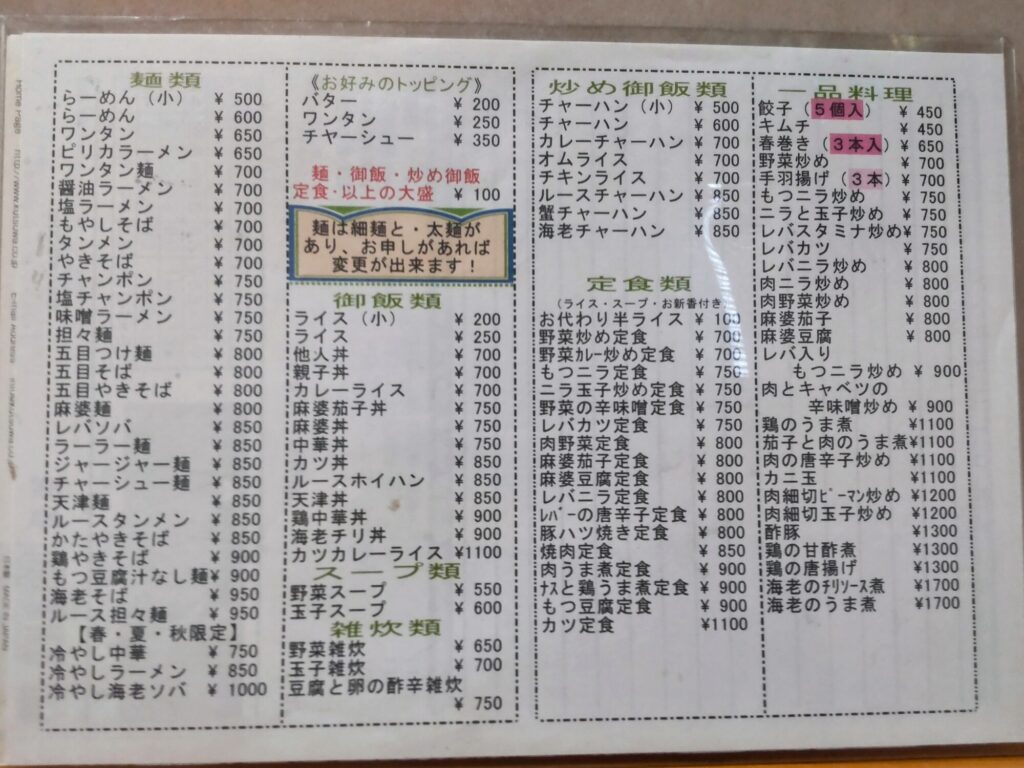 麺類
らーめん（小） ¥ 500
らーめん ¥ 600
ワンタン ¥ 650
ピリカラーメン ¥ 650
ワンタン麺 ¥ 700
醤油ラーメン ¥ 700
塩ラーメン ¥ 700
もやしそば ¥ 700
タンメン ¥ 700
やきそば ¥ 700
チャンポン ¥ 750
塩チャンポン ¥ 750
味噌ラーメン ¥ 750
担々麺 ¥ 750
五目つけ麺 ¥ 800
五目そば ¥ 800
五目やきそば ¥ 800
麻婆麺 ¥ 800
レバソバ ¥ 850
ラーラー麺 ¥ 850
ジャージャー麺 ¥ 850
チャーシュー麺 ¥ 850
天津麺 ¥ 850
ルースタンメン ¥ 850
かたやきそば ¥ 850
鶏やきそば ¥ 900
もつ豆腐汁なし麺¥ 900
海老そば ¥ 950
ルース担々麺 ¥ 950
【春・夏・秋限定】
冷やし中華 ¥ 750
冷やしラーメン ¥ 850
冷やし海老ソバ ¥ 1000
《お好みのトッピング》
バター ¥ 200
ワンタン ¥ 250
チャーシュー ¥ 350
麺・御飯・炒め御飯
定食・以上の大盛 ¥ 100
麺は細麺と・太麺が
あり、お申しがあれば
変更が出来ます！
御飯類
ライス（小） ¥ 200
ライス ¥ 250
他人丼 ¥ 700
親子丼 ¥ 700
カレーライス ¥ 700
麻婆茄子丼 ¥ 750
麻婆丼 ¥ 750
中華丼 ¥ 750
カツ丼 ¥ 850
ルースホイハン ¥ 850
天津丼 ¥ 850
鶏中華丼 ¥ 900
海老チリ丼 ¥ 900
カツカレーライス ¥1100
スープ類
野菜スープ ¥ 550
玉子スープ ¥ 600
雑炊類
野菜雑炊 ¥ 650
玉子雑炊 ¥ 700
豆腐と卵の酢辛雑炊
¥ 750
炒め御飯類
チャーハン（小） ¥ 500
チャーハン ¥ 600
カレーチャーハン ¥ 700
オムライス ¥ 700
チキンライス ¥ 700
ルースチャーハン ¥ 850
蟹チャーハン ¥ 850
海老チャーハン ¥ 850
定食類
（ライス・スープ・お新香付き）
お代わり半ライス ¥ 100
野菜炒め定食 ¥ 700
野菜ｶﾚｰ炒め定食 ¥ 700
もつニラ定食 ¥ 750
ニラ玉子炒め定食 ¥ 750
野菜の辛味噌定食 ¥ 750
レバカツ定食 ¥ 750
肉野菜定食 ¥ 800
麻婆茄子定食 ¥ 800
麻婆豆腐定食 ¥ 800
レバニラ定食 ¥ 800
ﾚﾊﾞｰの唐辛子定食 ¥ 800
豚ハツ焼き定食 ¥ 800
焼肉定食 ¥ 850
肉うま煮定食 ¥ 900
ﾅｽと鶏うま煮定食 ¥ 900
もつ豆腐定食 ¥ 900
カツ定食 ¥1100
一品料理
餃子（５個入） ¥ 450
キムチ ¥ 450
春巻き（３本入） ¥ 650
野菜炒め ¥ 700
手羽揚げ（３本） ¥ 700
もつニラ炒め ¥ 750
ニラと玉子炒め ¥ 750
レバスタミナ炒め¥ 750
レバカツ ¥ 750
レバニラ炒め ¥ 800
肉ニラ炒め ¥ 800
肉野菜炒め ¥ 800
麻婆茄子 ¥ 800
麻婆豆腐 ¥ 800
レバ入り
もつニラ炒め ¥ 900
肉とキャベツの
辛味噌炒め ¥ 900
鶏のうま煮 ¥1100
茄子と肉のうま煮¥1100
肉の唐辛子炒め ¥1100
カニ玉 ¥1100
肉細切ﾋﾟｰﾏﾝ炒め ¥1200
肉細切玉子炒め ¥1200
酢豚 ¥1300
鶏の甘酢煮 ¥1300
鶏の唐揚げ ¥1300
海老のﾁﾘｿｰｽ煮 ¥1700
海老のうま煮 ¥1700